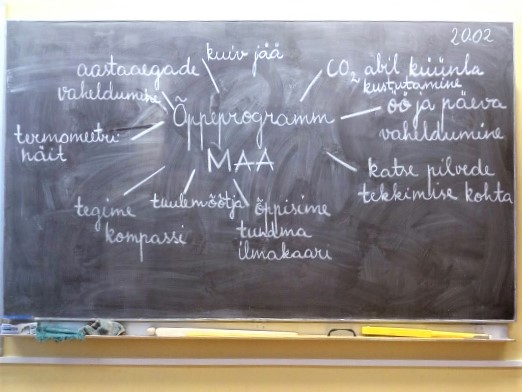 20.02
kuiv jää
aastaaegade
vaheldumine
CO₂ abil küünla
kustutamine
Õppeprogramm
MAA
öö ja päeva
vaheldumine
termomeetri
näit
katse pilvede
tekkimise kohta
tegime
kompassi
tuulemõõtja
õppisime
tundma
ilmakaari